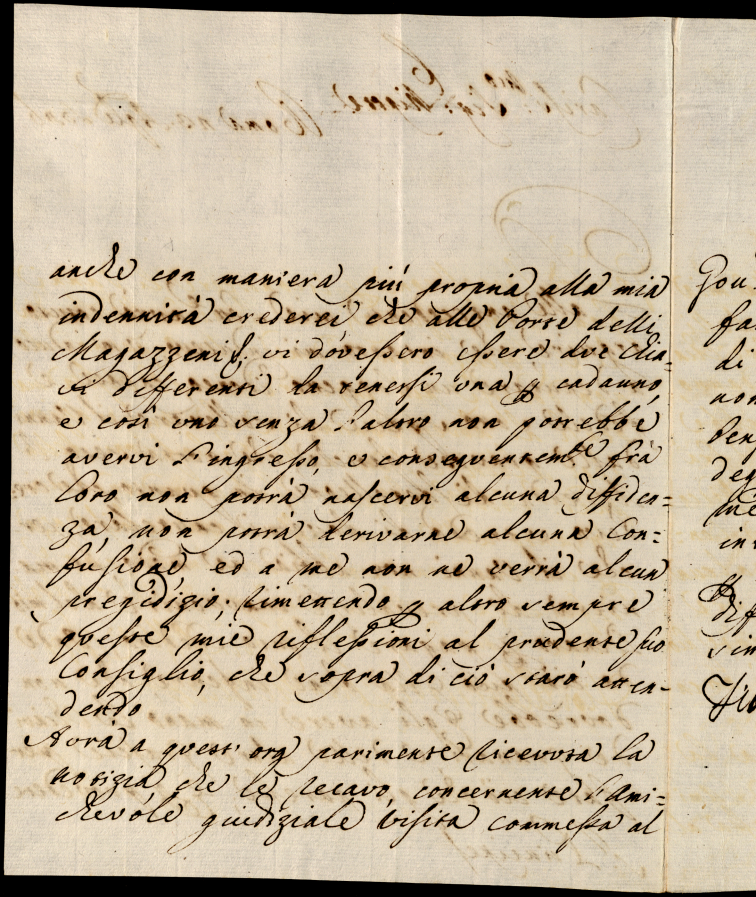 anche con maniera più propria alla mia
indennità crederei che alle Porte delli
Magazzeni vi dovessero essere due chia-
vi differenti da tenersi una p cadauno,
e così uno senza l'altro non potrebbe
avervi l'ingresso, e conseguentemte frà
loro non potrà nascervi alcuna diffiden=
za, non potrà derivarne alcuna Con=
fusione, ed a me non ne verrà alcun
pregidizio, rimettendo p altro sempre
queste mie riflessioni al prudente suo
Consiglio, che sopra di ciò starò atten-
dendo
Avrà a quest' ora parimente ricevuta la
notizia che le recavo, concernente l'ami=
chevole giudiziale visita commessa al
Gou
fa
di
non
Pen
deg
me
in
p
dif
sin